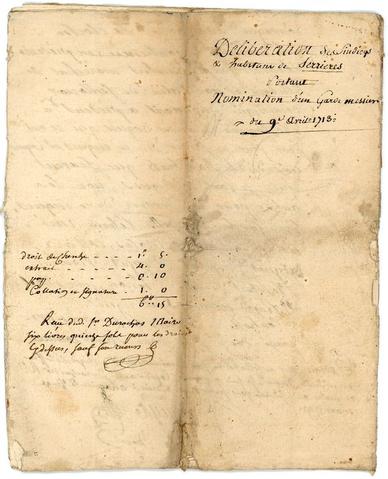 Deliberation de Sindicqs
& habitans de Serrieres
Portant
Nomination d'un Garde messier
du 9e Avril 1713
droit de - - - - 1# 5.
extrait - - - - 4. 0
- - - - 0. 10
Collation et signature - 1. 0
6# 15
Receu de d. Sr
six livres, quinze sols pour les droits
cydessus, sauf